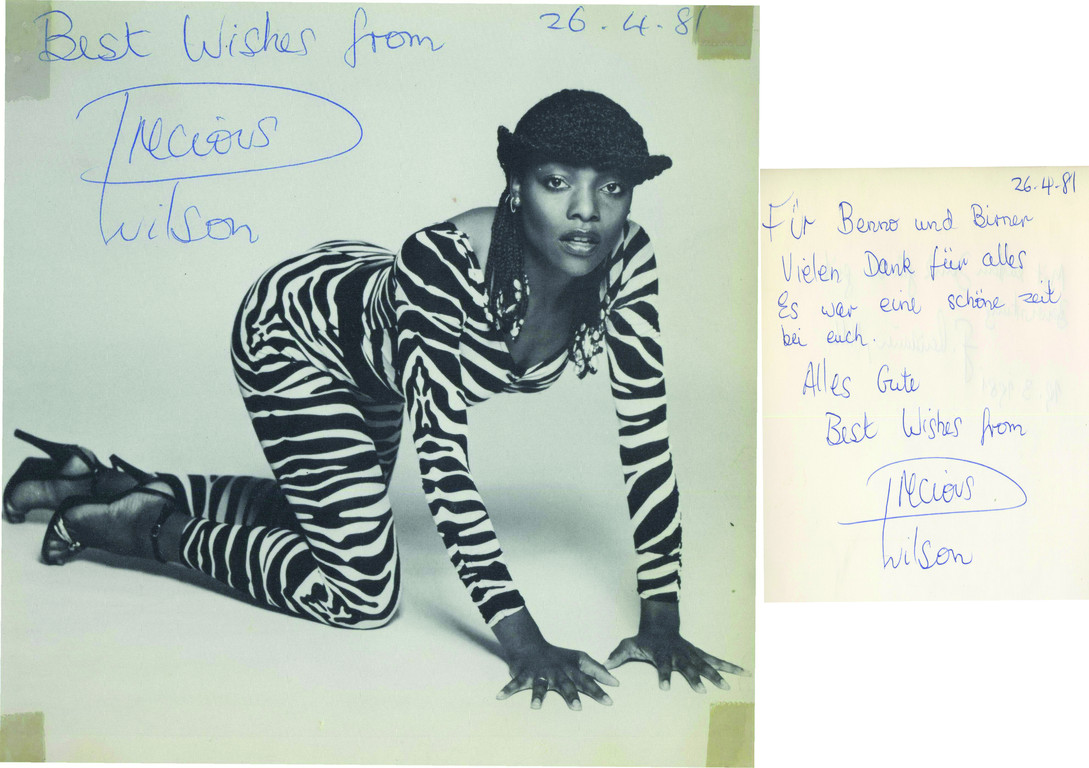 Best Wishes from
26.4.81
Precious
Wilson
26.4.81
Für Benno und Birner
Vielen Dank für alles
Es war eine schöne zeit
bei euch.
Alles Gute
Best Wishes from
Precious
Wilson